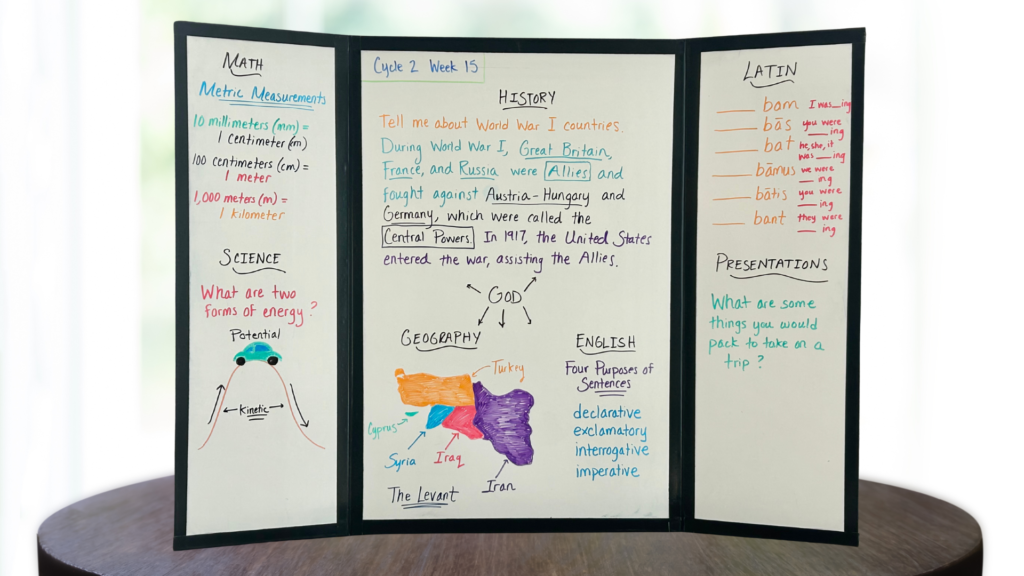 MATH
Metric Measurements
10 millimeters (mm) =
1 centimeter (m)
100 centimeters (cm) =
1 meter
1,000 meters (m) =
1 kilometer
SCIENCE
What are two
forms of energy?
Potential
Kinetic
Cycle 2 Week 15
HISTORY
Tell me about World War I countries.
During World War I, Great Britain,
France, and Russia were Allies and
fought against Austria-Hungary and
Germany, which were called the
Central Powers. In 1917, the United States
entered the war, assisting the Allies.
GOD
GEOGRAPHY
Turkey
Cyprus
Syria
Iraq
Iran
The Levant
ENGLISH
Four Purposes of
Sentences
declarative
exclamatory
interrogative
imperative
LATIN
____ bam I was__ing
____ bās you were
__ing
____ bat he, she, it
was __ing
____ bāmus we were
__ ing
____ bātis you were
__ ing
____ bant they were
__ ing
PRESENTATIONS
What are some
things you would
pack to take on a
trip?